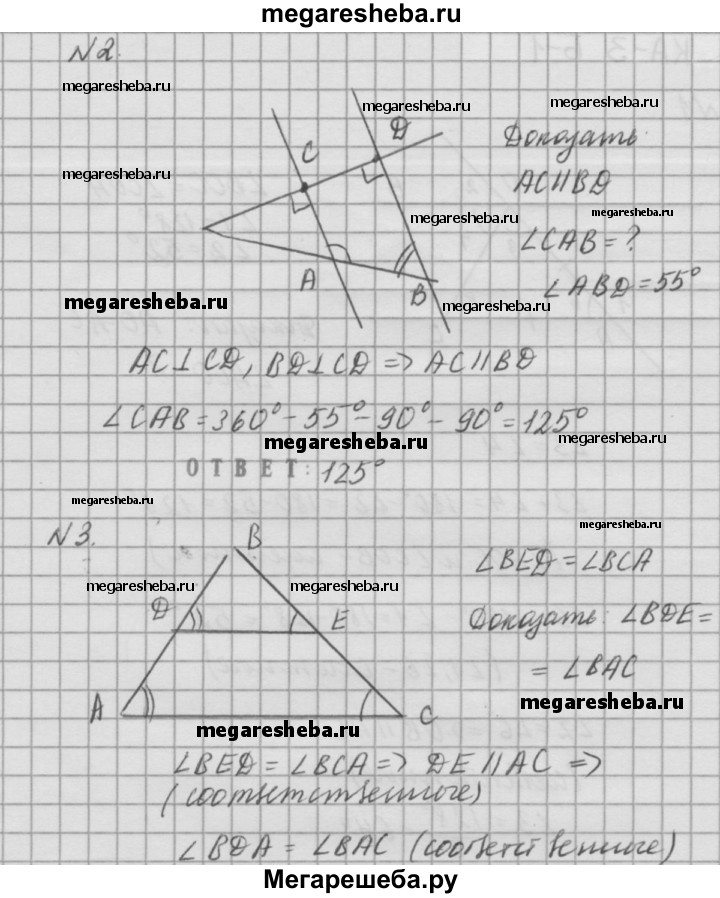 megaresheba.ru
N2.
megaresheba.ru
megaresheba.ru
megaresheba.ru
C
D
Доказать
megaresheba.ru
AC∥BD
megaresheba.ru
megaresheba.ru
∠CAB = ?
A
B
∠ABD = 55°
megaresheba.ru
megaresheba.ru
AC⊥CD, BD⊥CD => AC∥BD
∠CAB = 360° - 55° - 90° - 90° = 125°
megaresheba.ru
megaresheba.ru
ОТВЕТ: 125°
megaresheba.ru
N3.
B
megaresheba.ru
∠BED = ∠BCA
megaresheba.ru
megaresheba.ru
D
E
Доказать: ∠BDE =
= ∠BAC
A
C
megaresheba.ru
megaresheba.ru
∠BED = ∠BCA => DE∥AC =>
(соответственные)
∠BDA = ∠BAC (соответственные)
Мегарешеба.ру